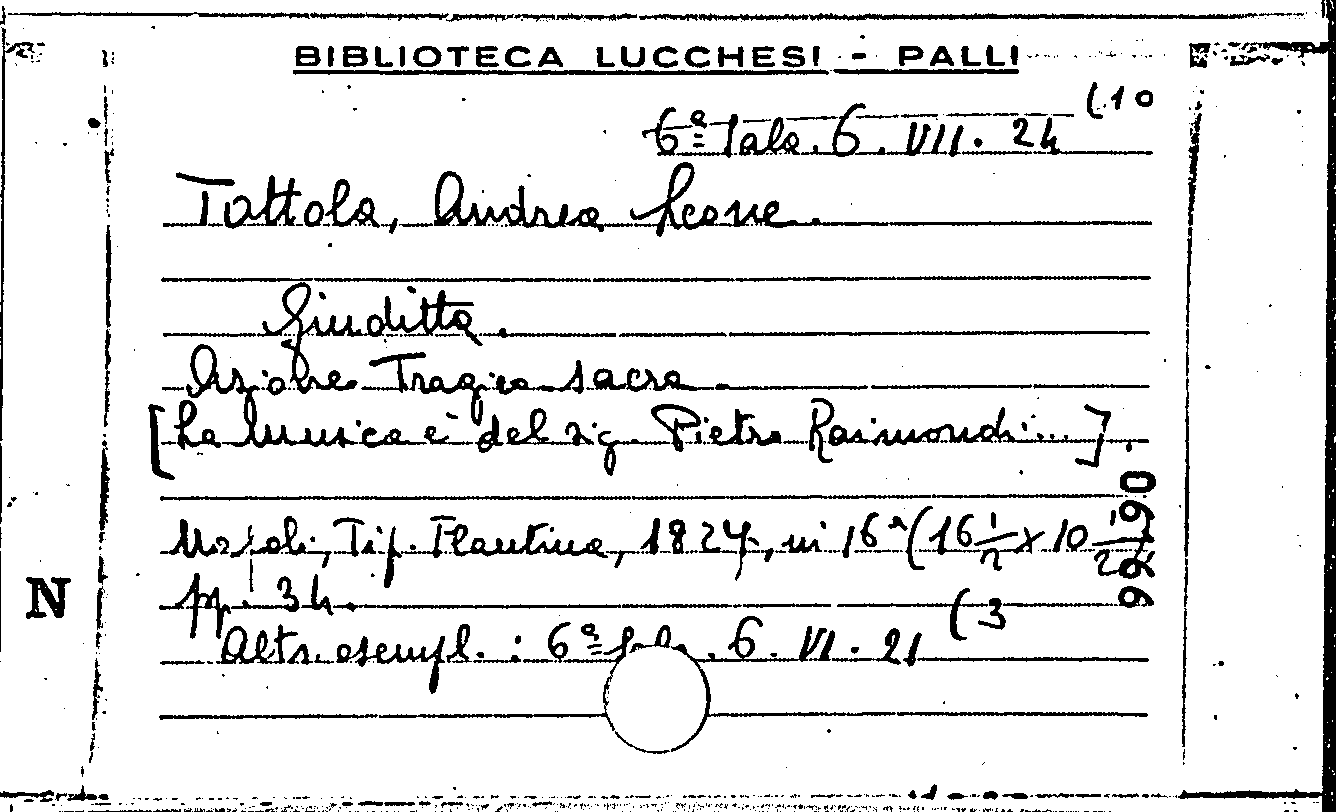 BIBLIOTECA LUCCHESI - PALLI
6ª Sala. 6. VII. 24 (10
Tottola, Andrea Leone.
Giuditta.
Azione Tragico-sacra.
[La musica è del sig. Pietro Raimondi...].
Napoli, Tip. Flautina, 1827, in 16° (16 1/2 x 10 1/2)
pp. 34.
Altr. esempl. : 6ª Sala. 6. VI. 21 (3
N